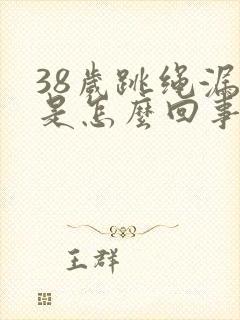 38歲跳绳漏
是怎麼回事
王群